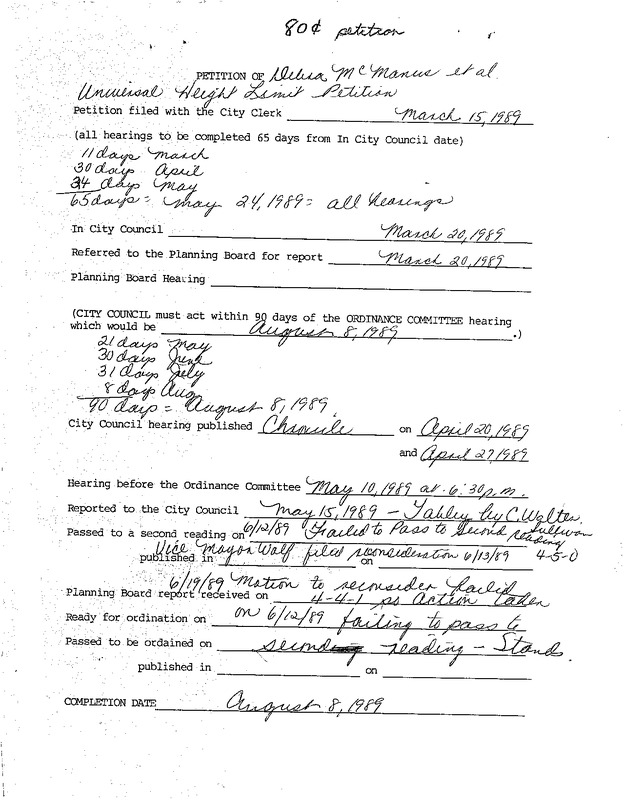 80¢ petition
PETITION OF Debra McManus et al.
Universal Height Limit Petition
Petition filed with the City Clerk March 15, 1989
(all hearings to be completed 65 days from In City Council date)
11 days March
30 days April
24 days May
65 days = May 24, 1989 = all hearings
In City Council March 20, 1989
Referred to the Planning Board for report March 20, 1989
Planning Board Hearing
(CITY COUNCIL must act within 90 days of the ORDINANCE COMMITTEE hearing
which would be August 8, 1989 .)
21 days May
30 days June
31 days July
8 days Aug
90 days = August 8, 1989
City Council hearing published Chronicle on April 20, 1989
and April 27, 1989
Hearing before the Ordinance Committee May 10, 1989 at 6:30 p.m.
Reported to the City Council May 15, 1989 - Tabled by C. Walter
Sullivan
Passed to a second reading on 6/12/89 Failed to Pass to Second reading
4-5-0
Vice Mayor Wolf filed reconsideration 6/13/89
published in on
6/19/89 Motion to reconsider failed
Planning Board report received on 4-4-1 so Action taken
Ready for ordination on on 6/12/89 failing to pass to
Passed to be ordained on second reading - Stands.
published in on
COMPLETION DATE August 8, 1989